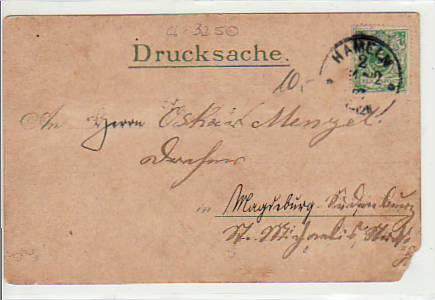 a-3250
Drucksache.
HAMELN
2
10,-
An Herrn Oskar Menzel!
in Magdeburg-Sudenburg
St. Michaelis Str.